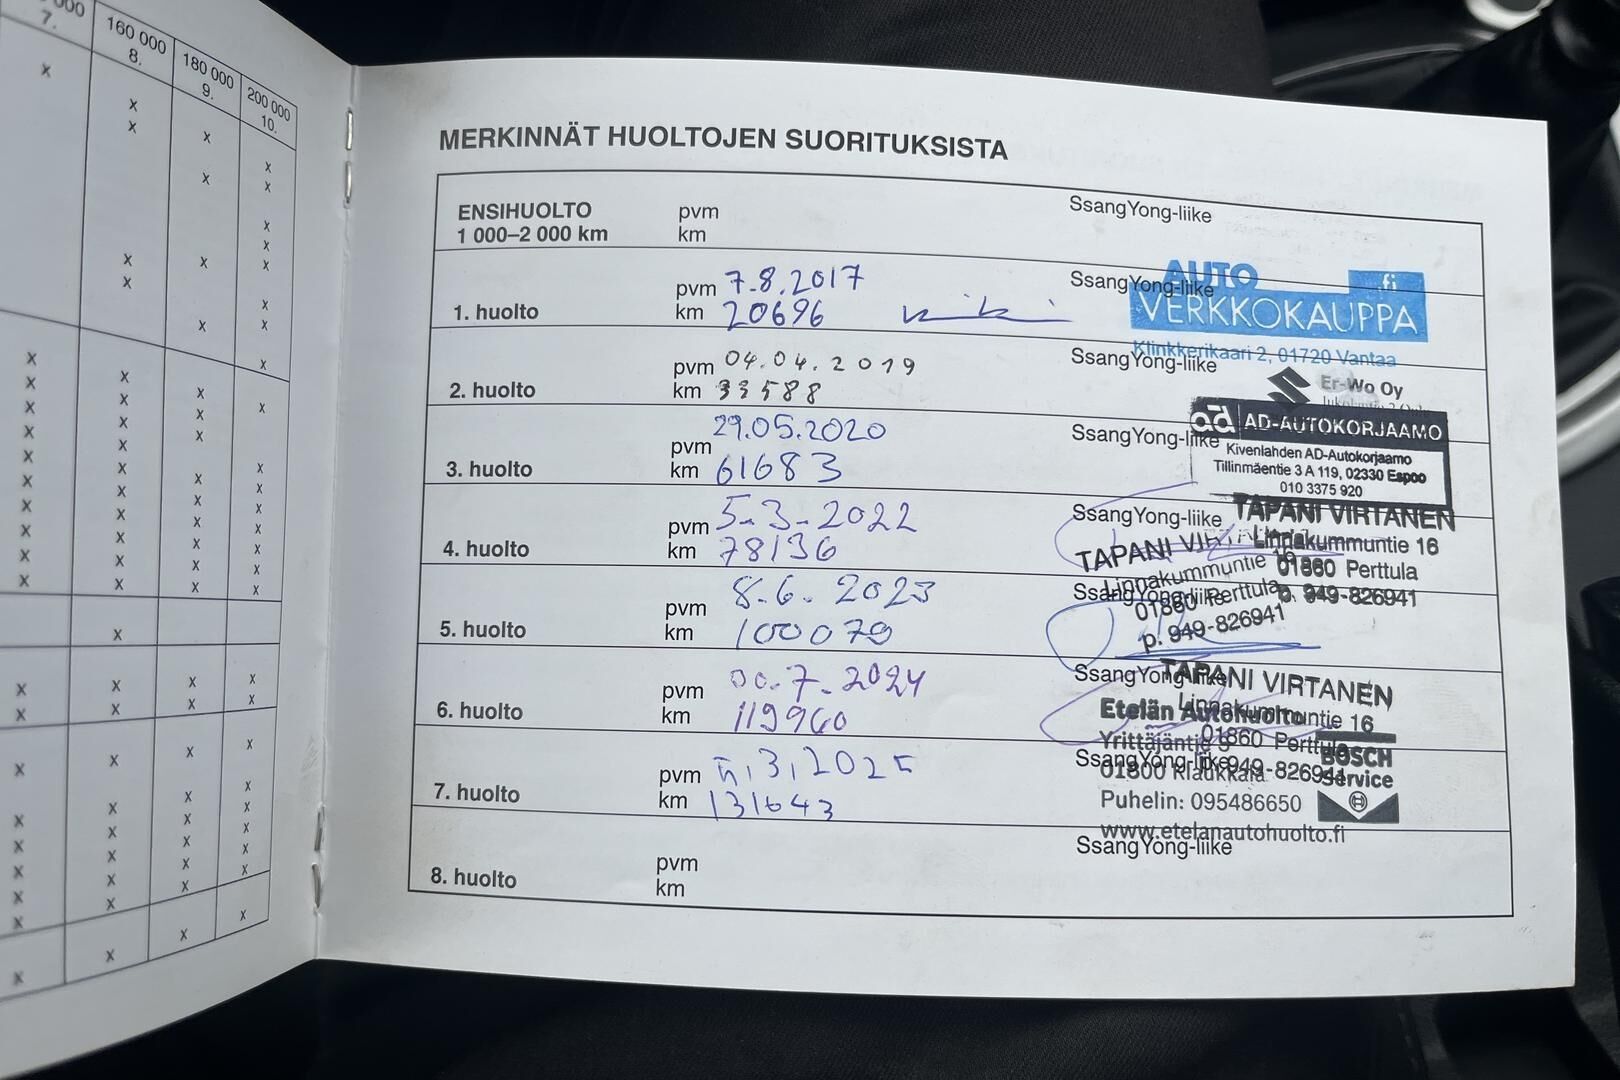 000 160 000 180 000 200 000
7. 8. 9. 10.
MERKINNÄT HUOLTOJEN SUORITUKSISTA
ENSIHUOLTO pvm SsangYong-liike
1 000–2 000 km km
pvm 7.8.2017 SsangYong-liike
1. huolto km 20696
AUTO
VERKKOKAUPPA .fi
Klinkkerikaari 2, 01720 Vantaa
pvm 04.04.2019 SsangYong-liike
2. huolto km 33588
Er-Wo Oy
pvm 29.05.2020 SsangYong-liike
3. huolto km 61683
ad AD-AUTOKORJAAMO
Kivenlahden AD-Autokorjaamo
Tillinmäentie 3 A 119, 02330 Espoo
010 3375 920
pvm 5.3.2022 SsangYong-liike
4. huolto km 78136
TAPANI VIRTANEN
Linnakummuntie 16
01860 Perttula
p. 949-826941
pvm 8.6.2023 SsangYong-liike
5. huolto km 100079
TAPANI VIRTANEN
Linnakummuntie 16
01860 Perttula
p. 949-826941
pvm 7.2024 SsangYong-liike
6. huolto km 119960
TAPANI VIRTANEN
Linnakummuntie 16
01860 Perttula
p. 949-826941
pvm 5.3.2025 SsangYong-liike
7. huolto km 131643
Etelän Autohuolto
Yrittäjäntie
01800 Klaukkala
Puhelin: 095486650
www.etelanautohuolto.fi
BOSCH
Service
pvm SsangYong-liike
8. huolto km